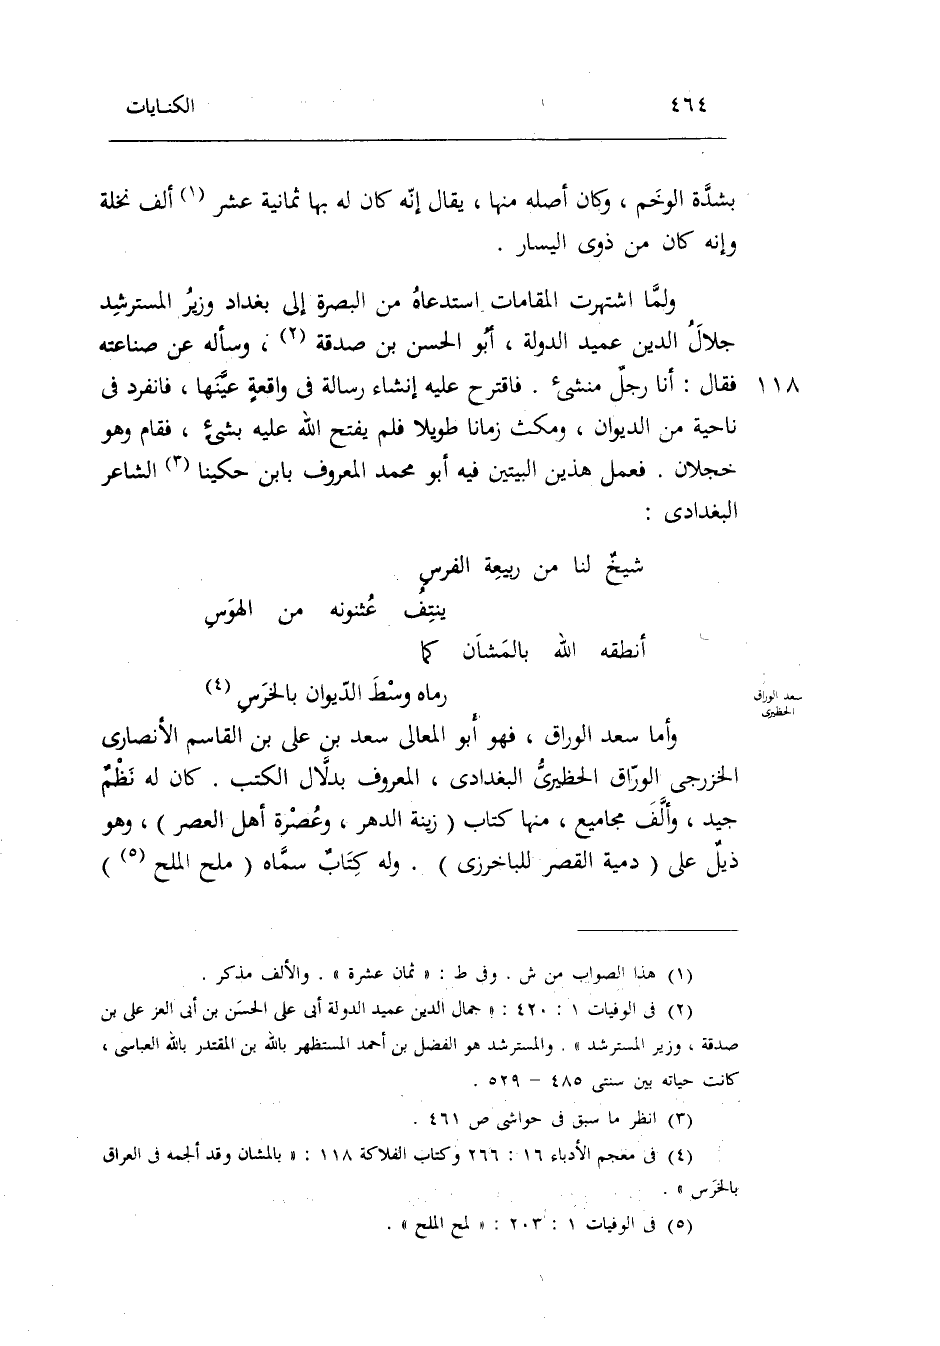 ٤٦٤ الكنـايات
بشدَّة الوخَم ، وكان أصله منها ، يقال إنّه كان له بها ثمانية عشر (١) ألف نخلة
وإنه كان من ذوى اليسار .
ولمَّا اشتهرت المقامات استدعاهُ من البصرة إلى بغداد وزيرُ المسترشِد
جلالُ الدين عميد الدولة ، أبُو الحسن بن صدقة (٢) ، وسأله عن صناعته
١١٨ فقال : أنا رجلٌ منشىُ . فاقترح عليه إنشاء رسالة فى واقعةٍ عيَّنَها ، فانفرد فى
ناحية من الديوان ، ومكث زمانا طويلا فلم يفتح اللّٰه عليه بشىُ ، فقام وهو
خجلان . فعمل هذين البيتين فيه أبو محمد المعروف بابن حكينا (٣) الشاعر
البغدادى :
شيخٌ لنا من ربيعِة الفرسِ
ينتِفُ عُثنونه من الهوَسِ
أنطقه اللّٰه بالمَشاَن كما
رماه وسْطَ الدّيوان بالخرَسِ (٤)
سعد الوراق
الحظيرى
وأما سعد الوراق ، فهو أبو المعالى سعد بن على بن القاسم الأنصارى
الخزرجى الورّاق الحظيرىُّ البغدادى ، المعروف بدلَّال الكتب . كان له نَظْمٌ
جيد ، وألَّفَ مجاميع ، منها كتاب ( زينة الدهر ، وعُصْرة أهل العصر ) ، وهو
ذيلٌ على ( دمية القصر للباخرزى ) . وله كِتَابٌ سمَّاه ( ملح الملح (٥) )
(١) هذا الصواب من ش . وفى ط : « ثمان عشرة » . والألف مذكر .
(٢) فى الوفيات ١ : ٤٢٠ : « جمال الدين عميد الدولة أبى على الحسَن بن أبى العز على بن
صدقة ، وزير المسترشد » . والمسترشد هو الفضل بن أحمد المستظهر باللّٰه بن المقتدر باللّٰه العباسى ،
كانت حياته بين سنتى ٤٨٥ – ٥٢٩ .
(٣) انظر ما سبق فى حواشى ص ٤٦١ .
(٤) فى معجم الأدباء ١٦ : ٢٦٦ وكتاب الفلاكة ١١٨ : « بالمشان وقد ألجمه فى العراق
بالخرَس » .
(٥) فى الوفيات ١ : ٢٠٣ : « لمح الملح » .